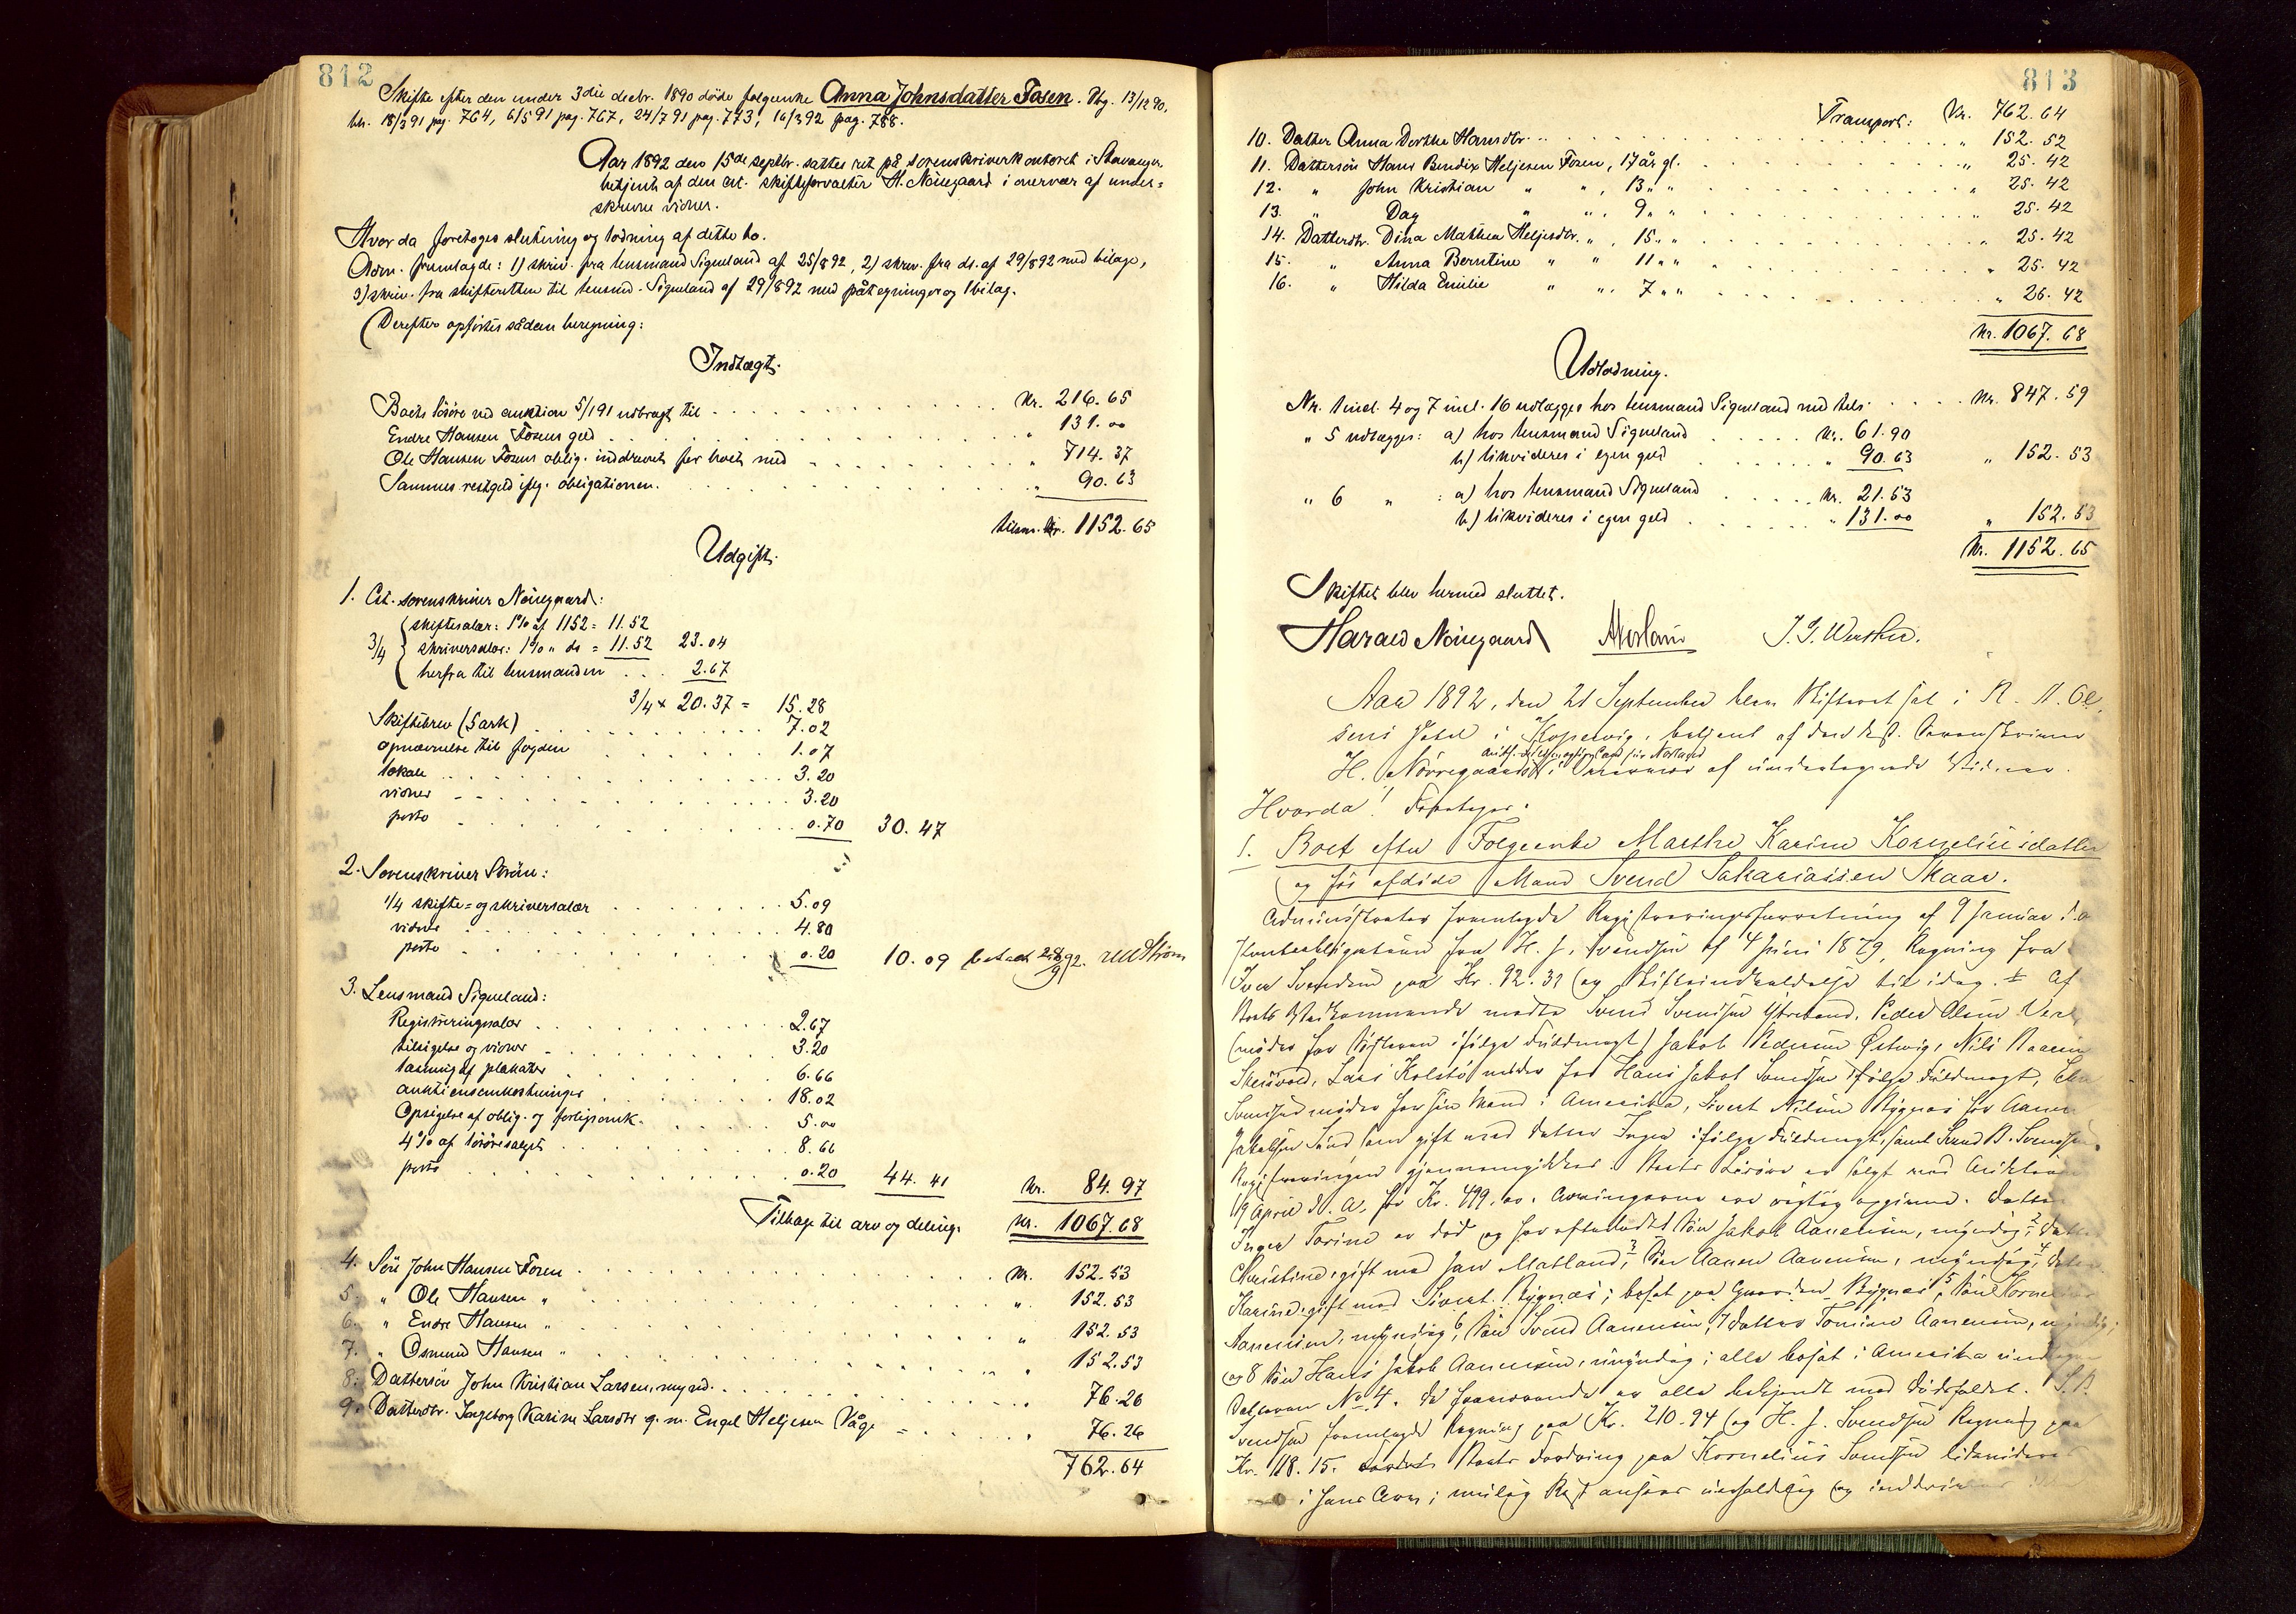 812
Skifte efter den under 3die decbr. 1890 døde folgeenke Anna Johnsdatter Fosen. Reg. 13/12 90,
beh. 18/3 91 pag. 764, 6/5 91 pag. 767, 24/7 91 pag. 773, 16/3 92 pag. 788.
Aar 1892 den 15de septbr. sattes ret på sorenskriverkontoret i Stavanger
betjent af den cst. skifteforvalter H. Nörregaard i overvær af under=
skrevne vidner.
Hvorda foretoges slutning og lodning af dette bo.
Adm. fremlagde: 1) skriv. fra lensmand Sigveland af 25/8 92, 2) skriv. fra ds. af 29/8 92 med bilage,
3) skriv. fra skifteretten til lensmd. Sigveland af 29/8 92 med påtegninger og 1 bilag.
Derefter opførtes sådan beregning:
Indtægt.
Boets lösöre ved auktion 5/1 91 udbragt til Kr. 216.65
Endre Hansen Fosens gæld " 131.00
Ole Hansen Fosens oblig. inddrevet for boet med " 714.37
Sammes restgæld iflg. obligationen " 90.63
tilsm. Kr. 1152.65
Udgift.
1. Cst. sorenskriver Nörregaard:
skiftesalær: 1% af 1152 = 11.52
3/4 skriversalær: 1% " do = 11.52 23.04
herfra til lensmanden 2.67
3/4 × 20.37 = 15.28
Skiftebrev (5 ark) 7.02
opnævnelse til fogden 1.07
lokale 3.20
vidner 3.20
porto 0.70 30.47
2. Sorenskriver Ström:
1/4 skifte= og skriversalær 5.09
vidner 4.80
porto 0.20 10.09 betalt
3. Lensmand Sigveland:
Registreringssalær 2.67
tilsigelse og vidner 3.20
læsning af plakater 6.66
auktionsomkostninger 18.02
Opsigelse af oblig. og forligsomk. 5.00
4% af lösöresalget 8.66
porto 0.20 44.41 Kr. 84.97
Tilbage til arv og deling Kr. 1067.68
4. Sön John Hansen Fosen Kr. 152.53
5. " Ole Hansen " " 152.53
6. " Endre Hansen " " 152.53
7. " Osmund Hansen " " 152.53
8. Dattersön John Kristian Larsen, mynd. " 76.26
9. Datterdtr. Ingeborg Karine Larsdtr g. m. Engel Heljesen Våge " 76.26
762.64
813
Transport: Kr. 762.64
10. Datter Anna Dorthe Hansdtr. " 152.52
11. Dattersön Hans Bendix Heljesen Fosen, 17 år gl. " 25.42
12. " John Kristian " " , 13 " " " 25.42
13. " Dag " " , 9 " " " 25.42
14. Datterdtr. Dina Mathea Heljesdtr. " , 15 " " " 25.42
15. " Anna Berntine " " 11 " " " 25.42
16. " Hilda Emilie " " , 7 " " " 25.42
Kr. 1067.68
Udlodning.
Nr. 1 incl. 4 og 7 incl. 16 udlægges hos lensmand Sigveland med tils. Kr. 847.59
" 5 udlægges: a) hos lensmand Sigveland Kr. 61.90
b) likvideres i egen gæld " 90.63 " 152.53
" 6 " : a) hos lensmand Sigveland Kr. 21.53
b) likvideres i egen gæld " 131.00 " 152.53
Kr. 1152.65
Skiftet blev hermed sluttet.
Harald Nörregaard
Aar 1892, den 21 September blev Skifteret sat i R. A. Ol=
sens Hotel i Kopervig, betjent af den cst. Sorenskriver
H. Nörregaard i Overvær af undertegnede Vidner.
Hvorda! Foretoges:
1. Boet efter Folgeenke Marthe Karine Korneliusdatter
og før afdøde Mand Svend Sakariassen Skaar.
Administrator fremlagde Registreringsforretning af 9 Januar d. A
Panteobligation fra H. J. Svendsen af 4 Juni 1879, Regning fra
Iver Svendsen paa Kr. 92.31 og Skifteindkaldelse til idag. Af
Boets Vedkommende mødte Svend Svendsen Peder Olsen
(møder for ifølge Fuldmagt) Jakob Pedersen Østvig, Nils
Lars Kolstø møder for Hans Jakob Svendsen ifølge Fuldmagt,
Svendsen møder for sin Mand i Amerika, Sivert Nilsen Bygnes for Aanen
Jakobsen Sund som gift med Datter Inger ifølge Fuldmagt, samt Svend B. Svendsen.
Registreringen gjennemgikkes. Boets Løsøre er solgt ved Auktion
19 April d. A. for Kr. 499.00. Arvingerne ere rigtig opgivne. Datter
Inger Torine er død og har efterladt 1 Søn Jakob Aanensen, myndig, 2 Datter
Christine, gift med Jan Matland, 3 Søn Aanen Aanensen, myndig, 4 Datter
Karine, gift med Sivert Bygnes, bosat paa Gaarden Bygnes, 5 Søn Kornelius
Aanensen, myndig, 6 Søn Svend Aanensen, 7 Datter Tomine Aanensen, myndig,
og 8 Søn Hans Jakob Aanensen, umyndig; alle bosat i Amerika undtagen
Datteren No 4. De fraværende er alle bekjendt med Dødsfaldet. S. B
Svendsen fremlagde Regning paa Kr. 210.94 og H. J. Svendsen Regning paa
Kr. 118.15. Boets Fordring paa Kornelius Svendsen likvideres
i hans Arv; mulig Rest ansees uerholdelig og inddrives